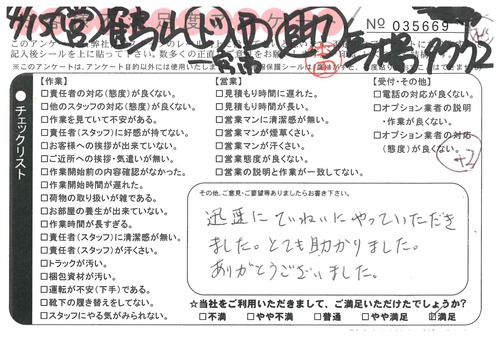 4/15 営 鶴山
No 035669
このアンケート
記入後シールを上に貼って下さい。
※このアンケートは、アンケート目的以外には使用いたしま
【作業】
□責任者の対応(態度)が良くない。
□他のスタッフの対応(態度)が良くない。
□作業を見ていて不安がある。
□責任者(スタッフ)に好感が持てない。
□お客様への挨拶が出来ていない。
□ご近所への挨拶・気遣いが無い。
□作業開始前の内容確認がなかった。
□作業開始時間が遅れた。
□荷物の取り扱いが雑である。
□お部屋の養生が出来ていない。
□作業時間が長すぎる。
□責任者(スタッフ)に清潔感が無い。
□責任者(スタッフ)が汗くさい。
□トラックが汚い。
□梱包資材が汚い。
□運転が不安(下手)である。
□靴下の履き替えをしてない。
□スタッフにやる気がみられない。
【営業】
□見積もり時間に遅れた。
□見積もり時間が長い。
□営業マンに清潔感が無い。
□営業マンが煙草くさい。
□営業マンが汗くさい。
□営業態度が良くない。
□営業の説明と作業が一致してない。
【受付・その他】
□電話の対応が良くない。
□オプション業者の説明
・作業が良くない。
□オプション業者の対応
(態度)が良くない。
+21
●チェックリスト
その他、ご意見・ご要望等ありましたらお書き下さい。
迅速にていねいにやっていただき
ました。とても助かりました。
ありがとうございました。
☆当社をご利用いただきまして、ご満足いただけたでしょうか?
□不満 □やや不満 □普通 □やや満足 ☑満足